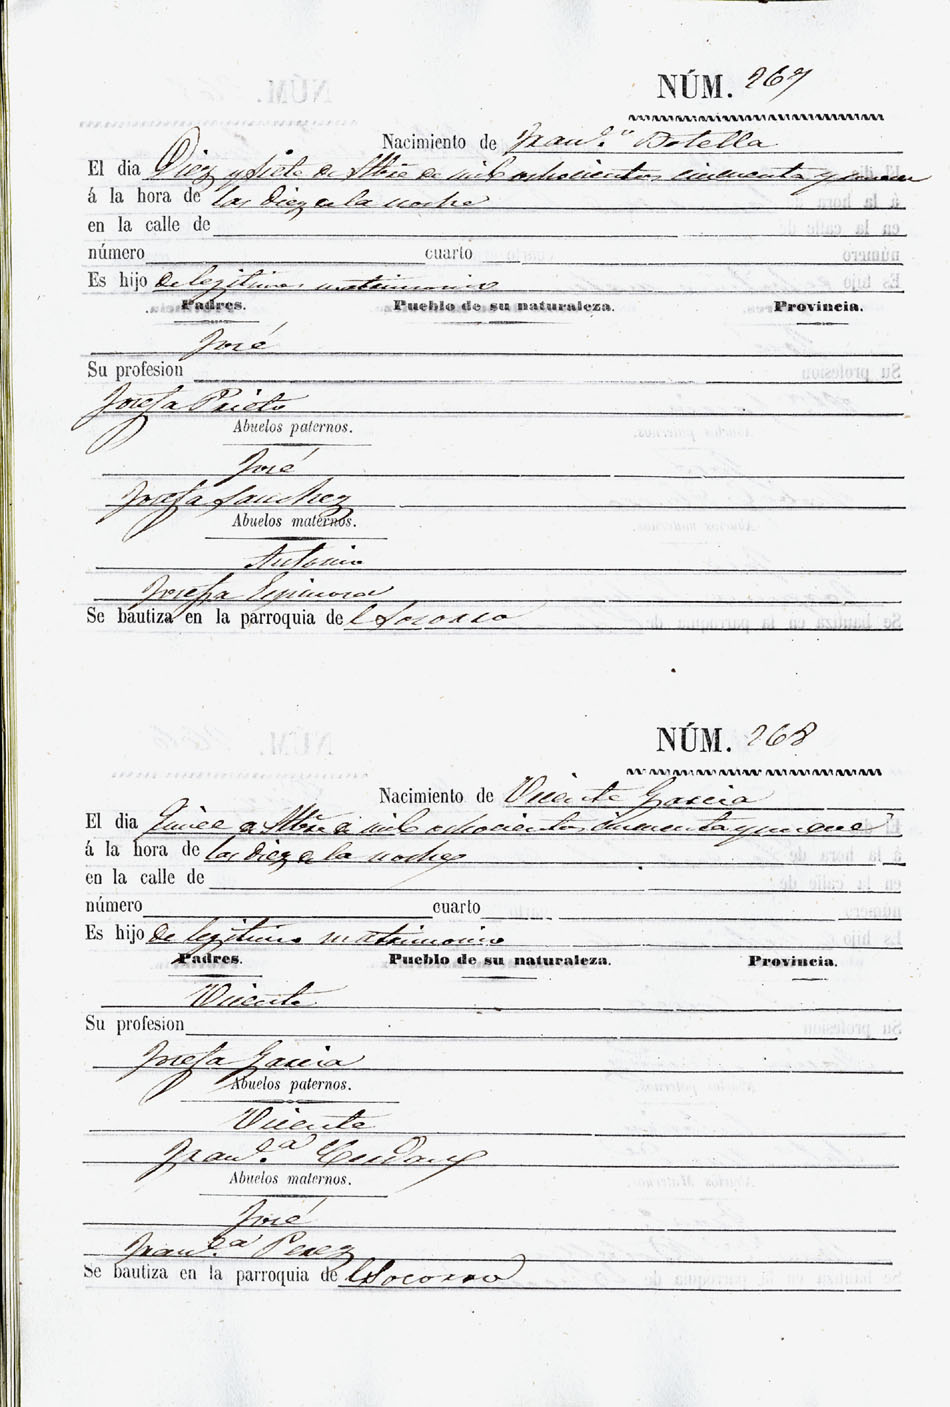 NÚM. 267
Nacimiento de Fran.co Botella
El dia Diez y siete de Stbre de mil ochocientos cincuenta y nueve
á la hora de las diez de la noche
en la calle de
número cuarto
Es hijo de legitimo matrimonio
Padres. Pueblo de su naturaleza. Provincia.
José
Su profesion
Josefa Prieto
Abuelos paternos.
José
Josefa Sanchez
Abuelos maternos.
Antonio
Josefa Espinosa
Se bautiza en la parroquia del Socorro
NÚM. 268
Nacimiento de Vicente Garcia
El dia Quince de Stbre de mil ochocientos cincuenta y nueve
á la hora de las diez de la noche
en la calle de
número cuarto
Es hijo de legitimo matrimonio
Padres. Pueblo de su naturaleza. Provincia.
Vicente
Su profesion
Josefa Garcia
Abuelos paternos.
Vicente
Fran.ca
Abuelos maternos.
José
Fran.ca Perez
Se bautiza en la parroquia del Socorro